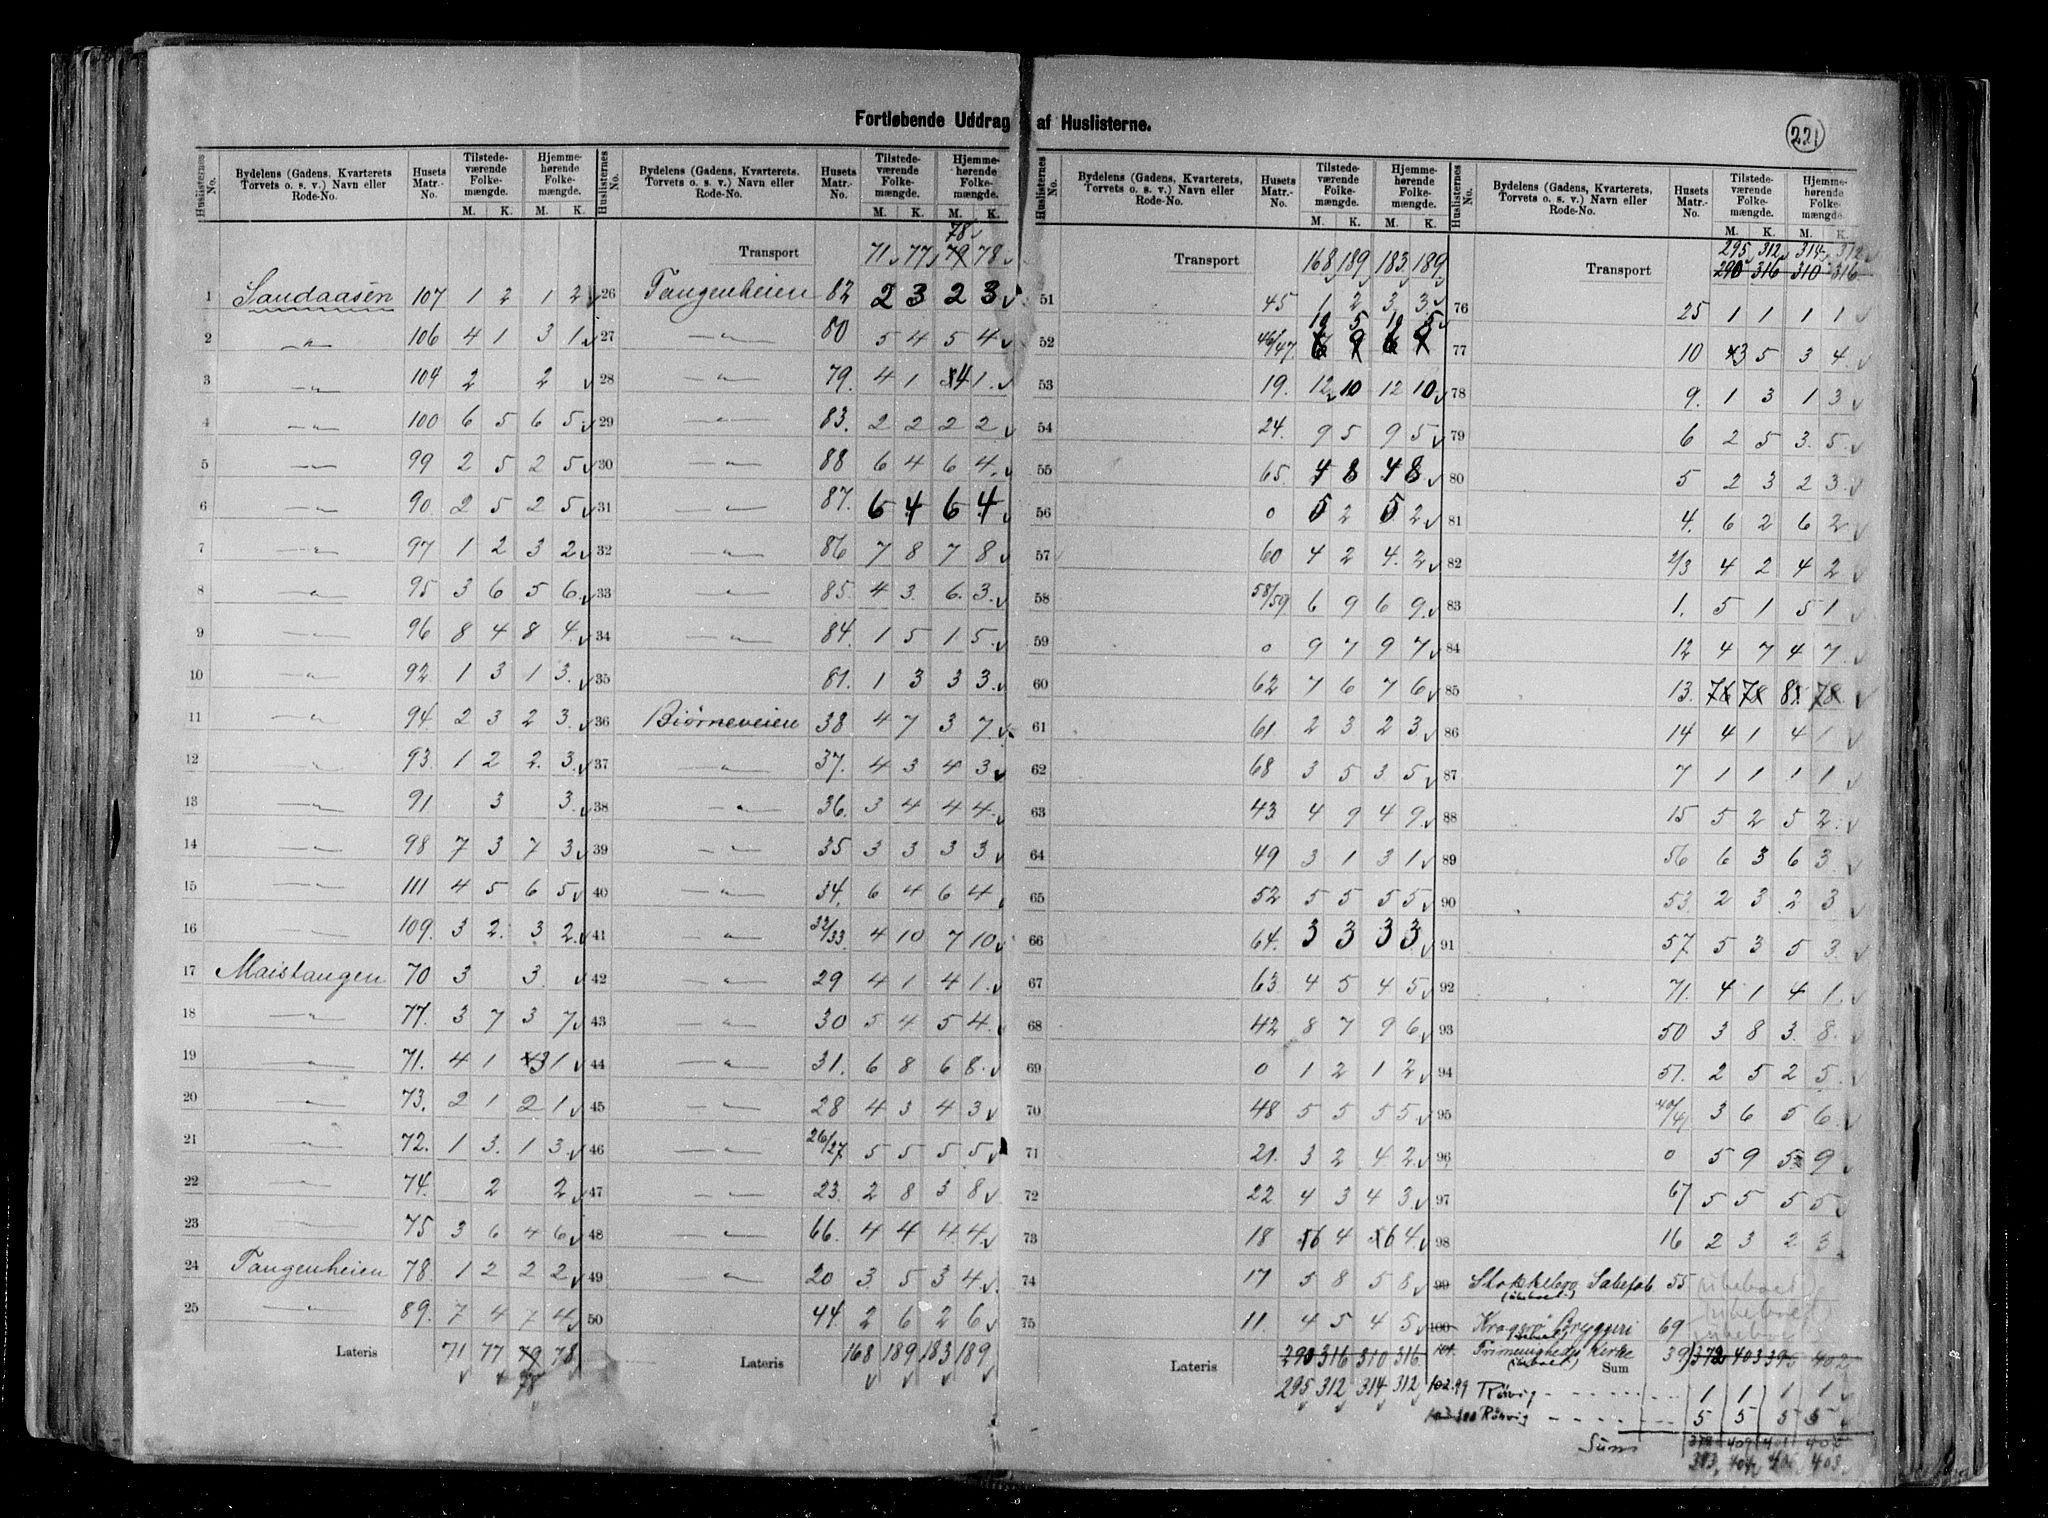 Fortløbende Uddrag af Huslisterne.
221
Huslisternes No. | Bydelens (Gadens, Kvarterets, Torvets o. s. v.) Navn eller Rode-No. | Husets Matr.-No. | Tilstedeværende Folkemængde. M. K. | Hjemmehørende Folkemængde. M. K.
1 Sandaasen 107 1 2 1 2
2 —„— 106 4 1 3 1
3 —„— 104 2 2
4 —„— 100 6 5 6 5
5 —„— 99 2 5 2 5
6 —„— 90 2 5 2 5
7 —„— 97 1 2 3 2
8 —„— 95 3 6 5 6
9 —„— 96 8 4 8 4
10 —„— 92 1 3 1 3
11 —„— 94 2 3 2 3
12 —„— 93 1 2 2 3
13 —„— 91 3 3
14 —„— 98 7 3 7 3
15 —„— 111 4 5 6 5
16 —„— 109 3 2 3 2
17 Maistangen 70 3 3
18 —„— 77 3 7 3 7
19 —„— 71 4 1 3 1
20 —„— 73 2 1 2 1
21 —„— 72 1 3 1 3
22 —„— 74 2 2
23 —„— 75 3 6 4 6
24 Tangenheien 78 1 2 2 2
25 —„— 89 7 4 7 4
Lateris 71 77 79 78
78
Transport 71 77 79 78
78
26 Tangenheien 82 2 3 2 3
27 —„— 80 5 4 5 4
28 —„— 79 4 1 4 1
29 —„— 83 2 2 2 2
30 —„— 88 6 4 6 4
31 —„— 87 6 4 6 4
32 —„— 86 7 8 7 8
33 —„— 85 4 3 6 3
34 —„— 84 1 5 1 5
35 81 1 3 3 3
36 Biørneveien 38 4 7 3 7
37 —„— 37 4 3 4 3
38 —„— 36 3 4 4 4
39 —„— 35 3 3 3 3
40 —„— 34 6 4 6 4
41 —„— 32/33 4 10 7 10
42 —„— 29 4 1 4 1
43 —„— 30 5 4 5 4
44 —„— 31 6 8 6 8
45 —„— 28 4 3 4 3
46 —„— 26/27 5 5 5 5
47 —„— 23 2 8 3 8
48 —„— 66 4 4 4 4
49 —„— 20 3 5 3 4
50 44 2 6 2 6
Lateris 168 189 183 189
Transport 168 189 183 189
51 45 1 2 3 3
52 46/47 10 5 10 5
53 19 12 10 12 10
54 24 9 5 9 5
55 65 4 8 4 8
56 0 5 2 5 2
57 60 4 2 4 2
58 58/59 6 9 6 9
59 0 9 7 9 7
60 62 7 6 7 6
61 61 2 3 2 3
62 68 3 5 3 5
63 43 4 9 4 9
64 49 3 1 3 1
65 52 5 5 5 5
66 64 3 3 3 3
67 63 4 5 4 5
68 42 8 7 9 6
69 0 1 2 1 2
70 48 5 5 5 5
71 21 3 2 4 2
72 22 4 3 4 3
73 18 6 4 6 4
74 17 5 8 5 8
75 11 4 5 4 5
Lateris 290 316 310 316
295 312 314 312
295 312 314 312
Transport 290 316 310 316
76 25 1 1 1 1
77 10 3 5 3 4
78 9 1 3 1 3
79 6 2 5 3 5
80 5 2 3 2 3
81 4 6 2 6 2
82 2/3 4 2 4 2
83 1 5 1 5 1
84 12 4 7 4 7
85 13
86 14 4 1 4 1
87 7 1 1 1 1
88 15 5 2 5 2
89 56 6 3 6 3
90 53 2 3 2 3
91 57 5 3 5 3
92 71 4 1 4 1
93 50 3 8 3 8
94 51 2 5 2 5
95 40/41 3 6 5 6
96 0 5 9 5 9
97 67 5 5 5 5
98 16 2 3 2 3
99 55 ubeboet
100 Kragerø Bryggeri 69 ubeboet
101 Frimenigheds Kirke 39 ubeboet
Sum 372 403 395 402
102 99 Rørvig 1 1 1 1
103 100 Rørvig 5 5 5 5
Sum
383 404 406 403